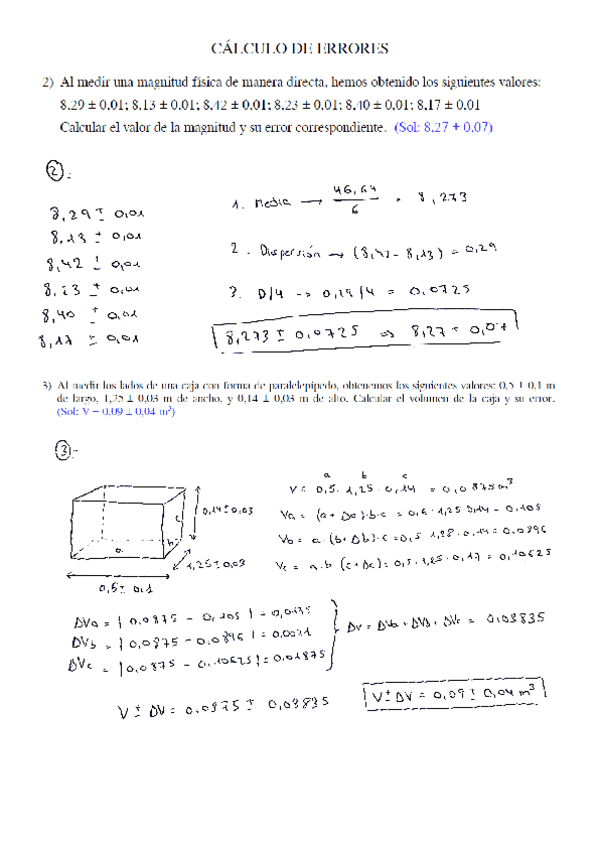 CÁLCULO DE ERRORES
2) Al medir una magnitud física de manera directa, hemos obtenido los siguientes valores:
8,29 ± 0,01; 8,13 ± 0,01; 8,42 ± 0,01; 8,23 ± 0,01; 8,40 ± 0,01; 8,17 ± 0,01
Calcular el valor de la magnitud y su error correspondiente. (Sol: 8,27 ± 0,07)
②:
8,29 ± 0,01
8,13 ± 0,01
8,42 ± 0,01
8,23 ± 0,01
8,40 ± 0,01
8,17 ± 0,01
1. Media → 46,64 / 6 = 8,273
2. Dispersión → (8,42 - 8,13) = 0,29
3. D/4 → 0,29/4 = 0,0725
8,273 ± 0,0725 ⇒ 8,27 ± 0,07
3) Al medir los lados de una caja con forma de paralelepípedo, obtenemos los siguientes valores: 0,5 ± 0,1 m
de largo, 1,25 ± 0,03 m de ancho, y 0,14 ± 0,03 m de alto. Calcular el volumen de la caja y su error.
(Sol: V = 0,09 ± 0,04 m³)
③:-
0,14 ± 0,03
c
b
a
1,25 ± 0,03
0,5 ± 0,1
a b c
V = 0,5 · 1,25 · 0,14 = 0,0875 m³
Va = (a + Δa)·b·c = 0,6 · 1,25 · 0,14 = 0,105
Vb = a·(b + Δb)·c = 0,5 · 1,28 · 0,14 = 0,0896
Vc = a·b (c + Δc) = 0,5 · 1,25 · 0,17 = 0,10625
ΔVa = | 0,0875 - 0,105 | = 0,0175
ΔVb = | 0,0875 - 0,0896 | = 0,0021
ΔVc = | 0,0875 - 0,10625 | = 0,01875
ΔV = ΔVa + ΔVb + ΔVc = 0,03835
V ± ΔV = 0,0875 ± 0,03835
V ± ΔV = 0,09 ± 0,04 m³